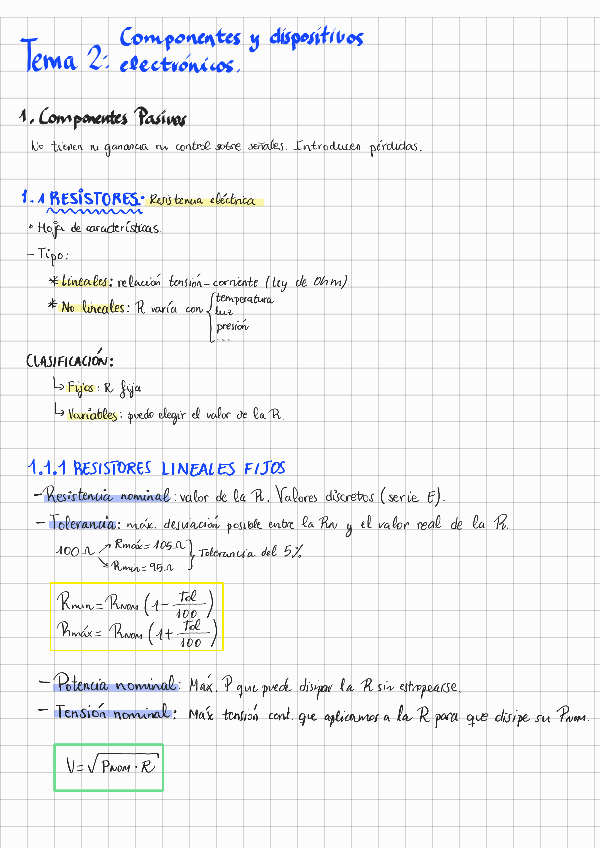 Tema 2: Componentes y dispositivos
electrónicos.
1. Componentes Pasivos
No tienen ni ganancia ni control sobre señales. Introducen pérdidas.
1.1 RESISTORES: Resistencia eléctrica
• Hoja de características.
- Tipo:
* Lineales: relación tensión-corriente (ley de Ohm)
* No lineales: R varía con { temperatura
luz
presión
...
CLASIFICACIÓN:
↳ Fijos: R fija
↳ Variables: puedo elegir el valor de la R.
1.1.1 RESISTORES LINEALES FIJOS
- Resistencia nominal: valor de la R. Valores discretos (serie E).
- Tolerancia: máx. desviación posible entre la RN y el valor real de la R.
100 Ω ↗ Rmáx = 105 Ω
↘ Rmin = 95 Ω } Tolerancia del 5%
Rmin = RNOM (1 - Tol/100)
Rmáx = RNOM (1 + Tol/100)
- Potencia nominal: Máx. P que puede disipar la R sin estropearse.
- Tensión nominal: Máx tensión cont. que aplicamos a la R para que disipe su PNOM.
V = √PNOM · R